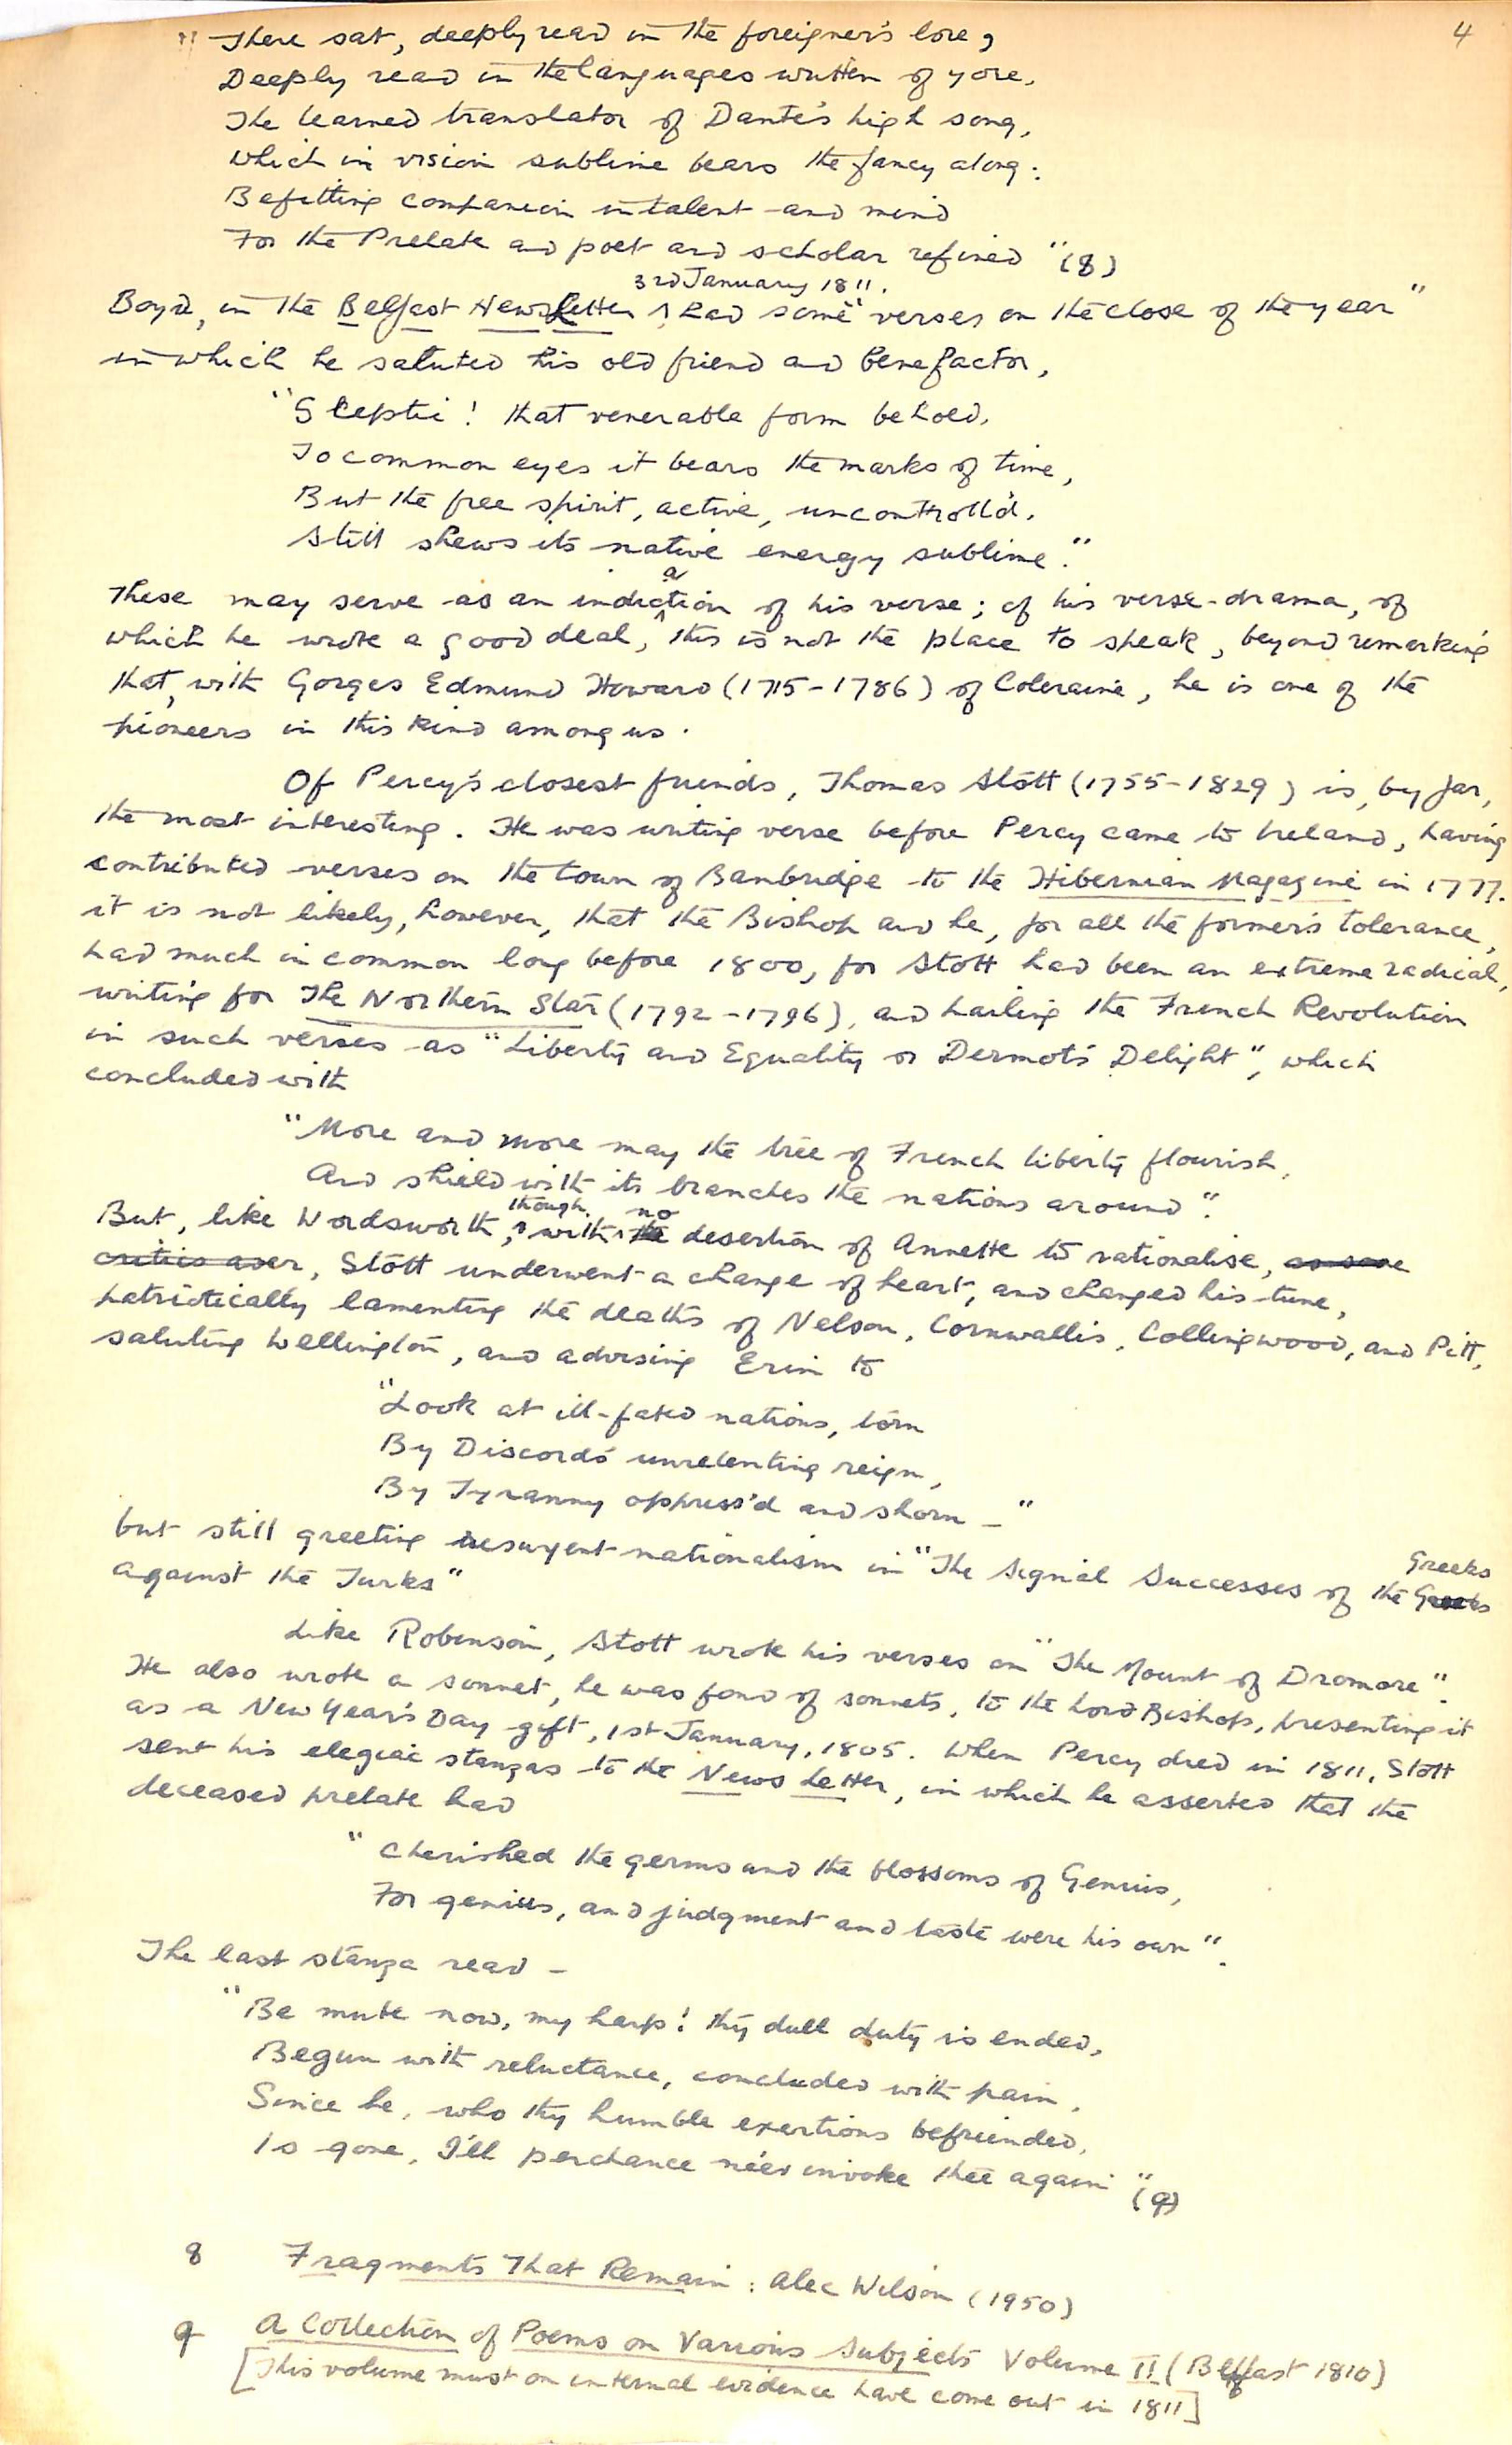 4
"There sat, deeply read in the foreigner's lore,
Deeply read in the languages written of yore,
The learned translator of Dante's high song,
Which in vision sublime bears the fancy along:
Befitting companion in talent and mind
For the Prelate and poet and scholar refined" (8)
3rd January 1811.
Boyd, in the Belfast News Letter had some "verses on the close of the year"
in which he saluted his old friend and benefactor,
"Sceptic! that venerable form behold,
To common eyes it bears the marks of time,
But the free spirit, active, uncontroll'd,
Still shews its native energy sublime."
a
These may serve as an indiction of his verse; of his verse-drama, of
which he wrote a good deal, this is not the place to speak, beyond remarking
that, with Gorges Edmund Howard (1715-1786) of Coleraine, he is one of the
pioneers in this kind among us.
Of Percy's closest friends, Thomas Stott (1755-1829) is, by far,
the most interesting. He was writing verse before Percy came to Ireland, having
contributed verses on the town of Banbridge to the Hibernian Magazine in 1777.
it is not likely, however, that the Bishop and he, for all the former's tolerance,
had much in common long before 1800, for Stott had been an extreme radical,
writing for The Northern Star (1792-1796), and hailing the French Revolution
in such verses as "Liberty and Equality or Dermot's Delight", which
concluded with
"More and more may the tree of French liberty flourish,
And shield with its branches the nations around".
though no
But, like Wordsworth, with the desertion of Annette to rationalise, as some
critics aver, Stott underwent a change of heart, and changed his tune,
patriotically lamenting the deaths of Nelson, Cornwallis, Collingwood, and Pitt,
saluting Wellington, and advising Erin to
"Look at ill-fated nations, torn
By Discord's unrelenting reign,
By Tyranny oppress'd and shorn -"
but still greeting resurgent nationalism in "The Signal Successes of the Greeks
Greeks
against the Turks"
Like Robinson, Stott wrote his verses on "The Mount of Dromore".
He also wrote a sonnet, he was fond of sonnets, to the Lord Bishop, presenting it
as a New Year's Day gift, 1st January, 1805. When Percy died in 1811, Stott
sent his elegiac stanzas to the News Letter, in which he asserted that the
deceased prelate had
"cherished the germs and the blossoms of Genius,
For genius, and judgment and taste were his own".
The last stanza read -
"Be mute now, my harp! thy dull duty is ended,
Begun with reluctance, concluded with pain,
Since he, who thy humble exertions befriended,
Is gone, I'll perchance ne'er invoke thee again" (9)
8 Fragments That Remain: Alec Wilson (1950)
9 A Collection of Poems on Various Subjects Volume II (Belfast 1810)
[This volume must on internal evidence have come out in 1811]